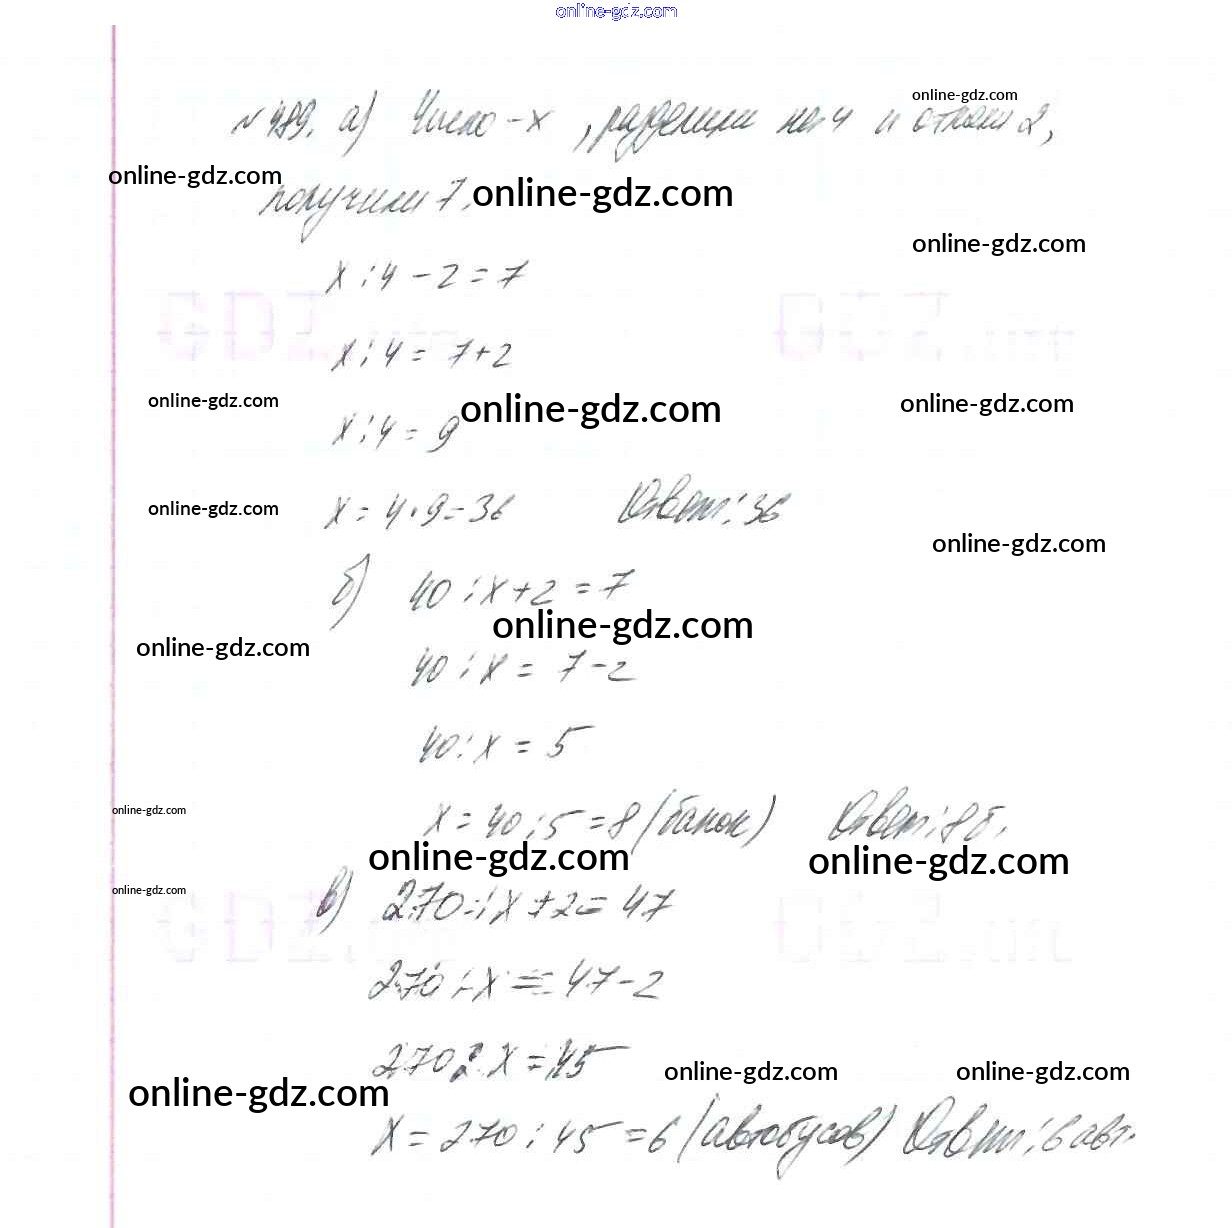 online-gdz.com
№ 489. а) Число - х, разделили на 4 и отняли 2,
online-gdz.com
online-gdz.com
получили 7.
online-gdz.com
online-gdz.com
х : 4 - 2 = 7
GDZ
GDZ
х : 4 = 7 + 2
online-gdz.com
online-gdz.com
online-gdz.com
х : 4 = 9
online-gdz.com
х = 4 · 9 = 36 Ответ: 36
online-gdz.com
б) 40 : х + 2 = 7
online-gdz.com
online-gdz.com
40 : х = 7 - 2
40 : х = 5
online-gdz.com
х = 40 : 5 = 8 (банок) Ответ: 8 б.
online-gdz.com
online-gdz.com
online-gdz.com
в) 270 : х + 2 = 47
GDZ
270 : х = 47 - 2
270 : х = 45
online-gdz.com
online-gdz.com
online-gdz.com
х = 270 : 45 = 6 (автобусов) Ответ: 6 авт.